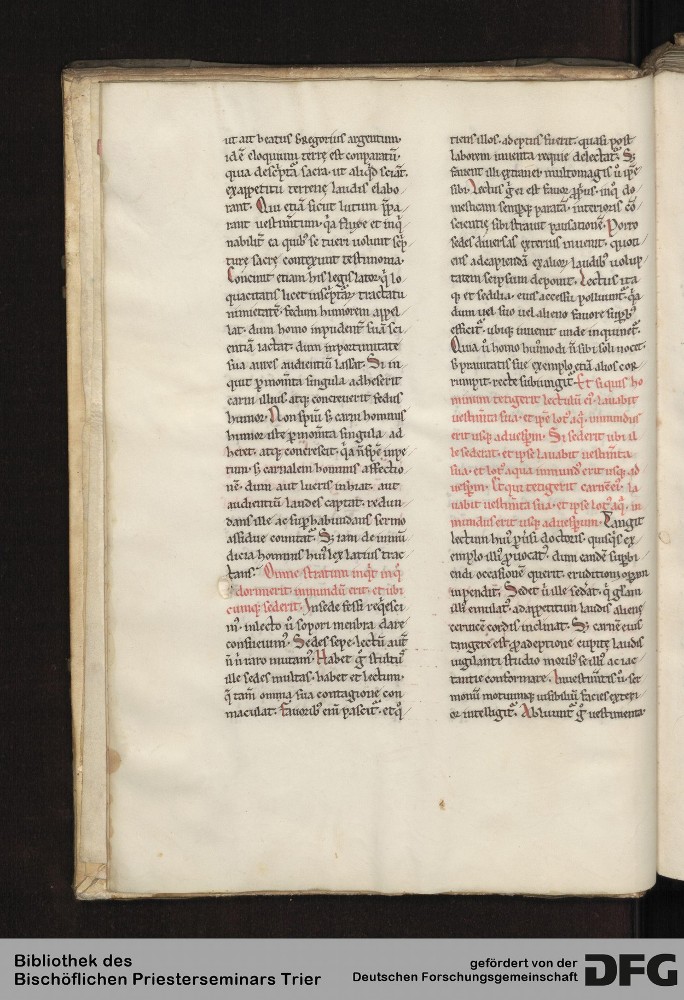 ut ait beatus Gregorius argentum
idē eloquium terrę est conparatū·
quia descͥpta sacra· ut aliqͥd sciāt·
exappetitu terrenę laudis elabo
rant· Qui etiā sicut lutum p̄pa
rant uestim̄tum· q̇a fluxe et inqͥ
nabilit̄ ea quibꝰ se tueri uolunt scͥp
turę sacrę contexunt testimonia·
Concinit etiam his legislator· qͥ lo
quacitatis licet inscͥptar̄ tractatu
nimietatē· fedum humorem appel
lat· dum homo inpudent̄ suā sci
entiā iactat· dum inportunitate
sua aures audientiū lassat· Si in
quit ꝑ mom̄ta singula adheserit
carni illius· atqꝫ concreuerit fedus
humor· Non spiū sꝫ carni hominis
humor iste ꝑ mom̄ta singula ad
heret· atqꝫ concrescit· q̇a n̄ spē inpe
tum· sꝫ carnalem hominis affectio
nē· dum aut lucris inhiat· aut
audientiū laudes captat· redun
dans ille ac suꝑhabundans sermo
assidue comitat̄· Sꝫ iam de inmū
dicia hominis hui lex latius trac
tans· Omne stratum inqͥt inqͦ
dormierit inmundū erit· et ubi
cumqꝫ sederit· Insede fessi reqͥesci
mꝰ· inlecto ū sopori menbra dare
consueuimꝰ· Sedes sepe· lectū aut̄
n̄ n̄ raro mutamꝰ· Habet ḡ stultꝰ
ille sedes multas· habet et lectum·
q̄ tam̄ omnia sua contagione con
maculat· Fauoribꝰ eni pascit̄· et qͦ
tiens illos· adeptus fuerit· quasi post
laborem inuenta requie delectat̄· Sꝫ
fauent illi extranei· multomagis ū ipse
sibi· Lectus ḡ ei est fauor ꝓpͥus· inqͦ do
mesticam semꝑ qꝫ paratā· interioris cō
scientię sibi strauit pausationē· Porro
sedes diuersas exterius inuenit· quoti
ens adcapiendā exalior̄ laudibꝰ uolup
tatem seipsum deponit· Lectus ita
qꝫ et sedilia· eius accessu polluunt̄· q̇a
dum uel suo uel alieno fauore suꝑbꝰ
efficit̄· ubiqꝫ inuenit unde inquinet̄·
Quia ū homo huiꝰmodi n̄ sibi soli nocet·
sꝫ prauitatis sue exemplo etiā alios cor
rumpit· recte subiungit̄· Et si quis ho
minum tetigerit lectulū eiꝰ· lauabit
uestim̄ta sua· et ipse lotꝰ aq̇· inmundus
erit usqꝫ aduesꝑm· Si sederit ubi il
le sederat· et ipse lauabit uestim̄ta
sua· et lotꝰ aqua inmundꝰ erit usqꝫ ad
uesꝑm· Et qui tetigerit carnē eiꝰ· la
uabit uestim̄ta sua· et ipse lotꝰ aq̇· in
mundus erit usqꝫ aduesꝑum· Tangit
lectum huiꝰ ꝓͥui doctoris· quisqͥs ex
emplo illiꝰ ꝓuocatꝰ· dum eandē suꝑbi
endi occasionē querit· eruditioni oꝑam
inpendit· Sedet ū ille sederat· q̇ glām
illiꝰ emulatꝰ· adappetitum laudis alienę
ceruicē cordis inclinat· Sꝫ carnē eius
tangere est· ꝓ adeptione cupitę laudis
uigilanti studio moribꝰ se illiꝰ ac iac
tantie conformare· Inuestim̄tis ū· ser
monū motuumqꝫ uisibiliū facies exteri
or intelligit̄· Abluunt̄ ḡ uestimenta·
Bibliothek des
Bischöflichen Priesterseminars Trier
gefördert von der
Deutschen Forschungsgemeinschaft
DFG